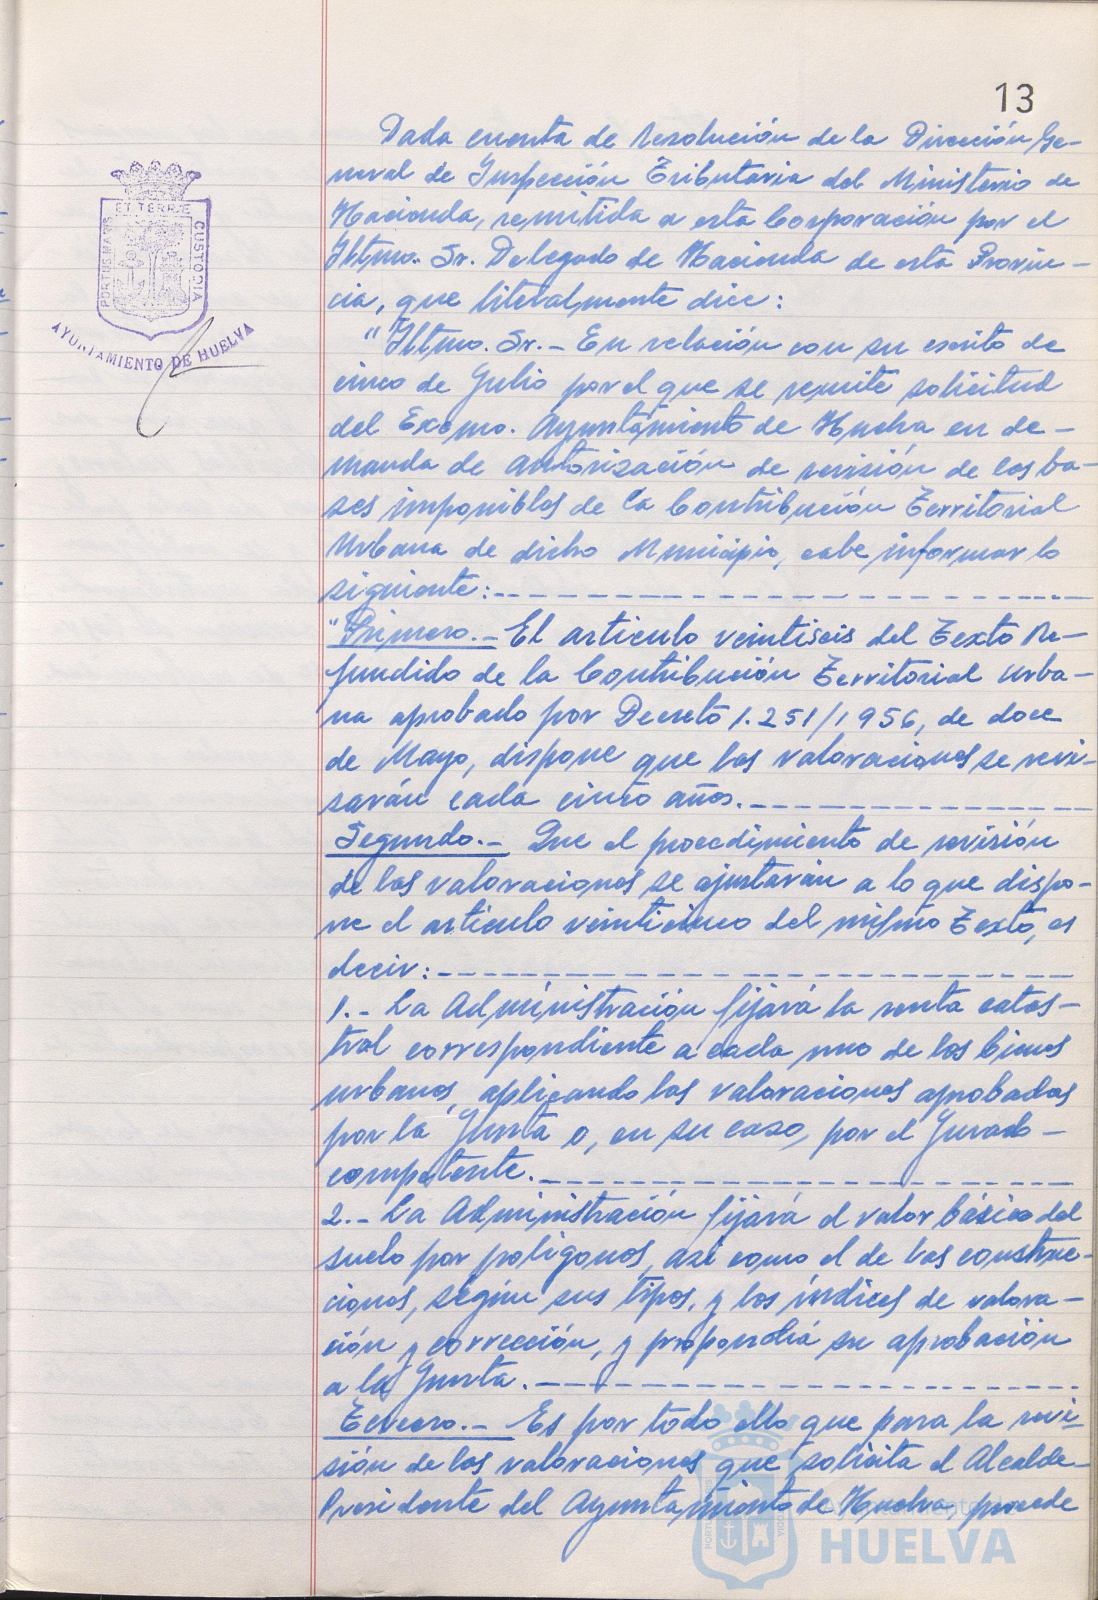 13
Dada cuenta de Resolución de la Dirección Ge-
neral de Inspección Tributaria del Ministerio de
Hacienda, remitida a esta Corporación por el
Iltmo. Sr. Delegado de Hacienda de esta Provin-
cia, que literalmente dice:
"Iltmo. Sr.- En relación con su escrito de
cinco de Julio por el que se remite solicitud
del Excmo. Ayuntamiento de Huelva en de-
manda de autorización de revisión de las ba-
ses imponibles de la Contribución Territorial
Urbana de dicho Municipio, cabe informar lo
siguiente:
"Primero.- El articulo veintiseis del Texto Re-
fundido de la Contribución Territorial Urba-
na aprobado por Decreto 1.251/1956, de doce
de Mayo, dispone que las valoraciones se revi-
sarán cada cinco años.
Segundo.- Que el procedimiento de revisión
de las valoraciones se ajustarán a lo que dispo-
ne el articulo veinticinco del mismo Texto, es
decir:
1.- La Administración fijará la renta catas-
tral correspondiente a cada uno de los bienes
urbanos, aplicando las valoraciones aprobadas
por la Junta o, en su caso, por el Jurado
competente.
2.- La Administración fijará el valor básico del
suelo por poligonos, asi como el de las construc-
ciones, según sus tipos, y los índices de valora-
ción y corrección, y propondrá su aprobación
a la Junta.
Tercero.- Es por todo ello que para la revi-
sión de las valoraciones que solicita el Alcalde-
Presidente del Ayuntamiento de Huelva, procede
PORTUS MARIS ET TERRÆ CUSTODIA
AYUNTAMIENTO DE HUELVA
Ayuntamiento de
HUELVA